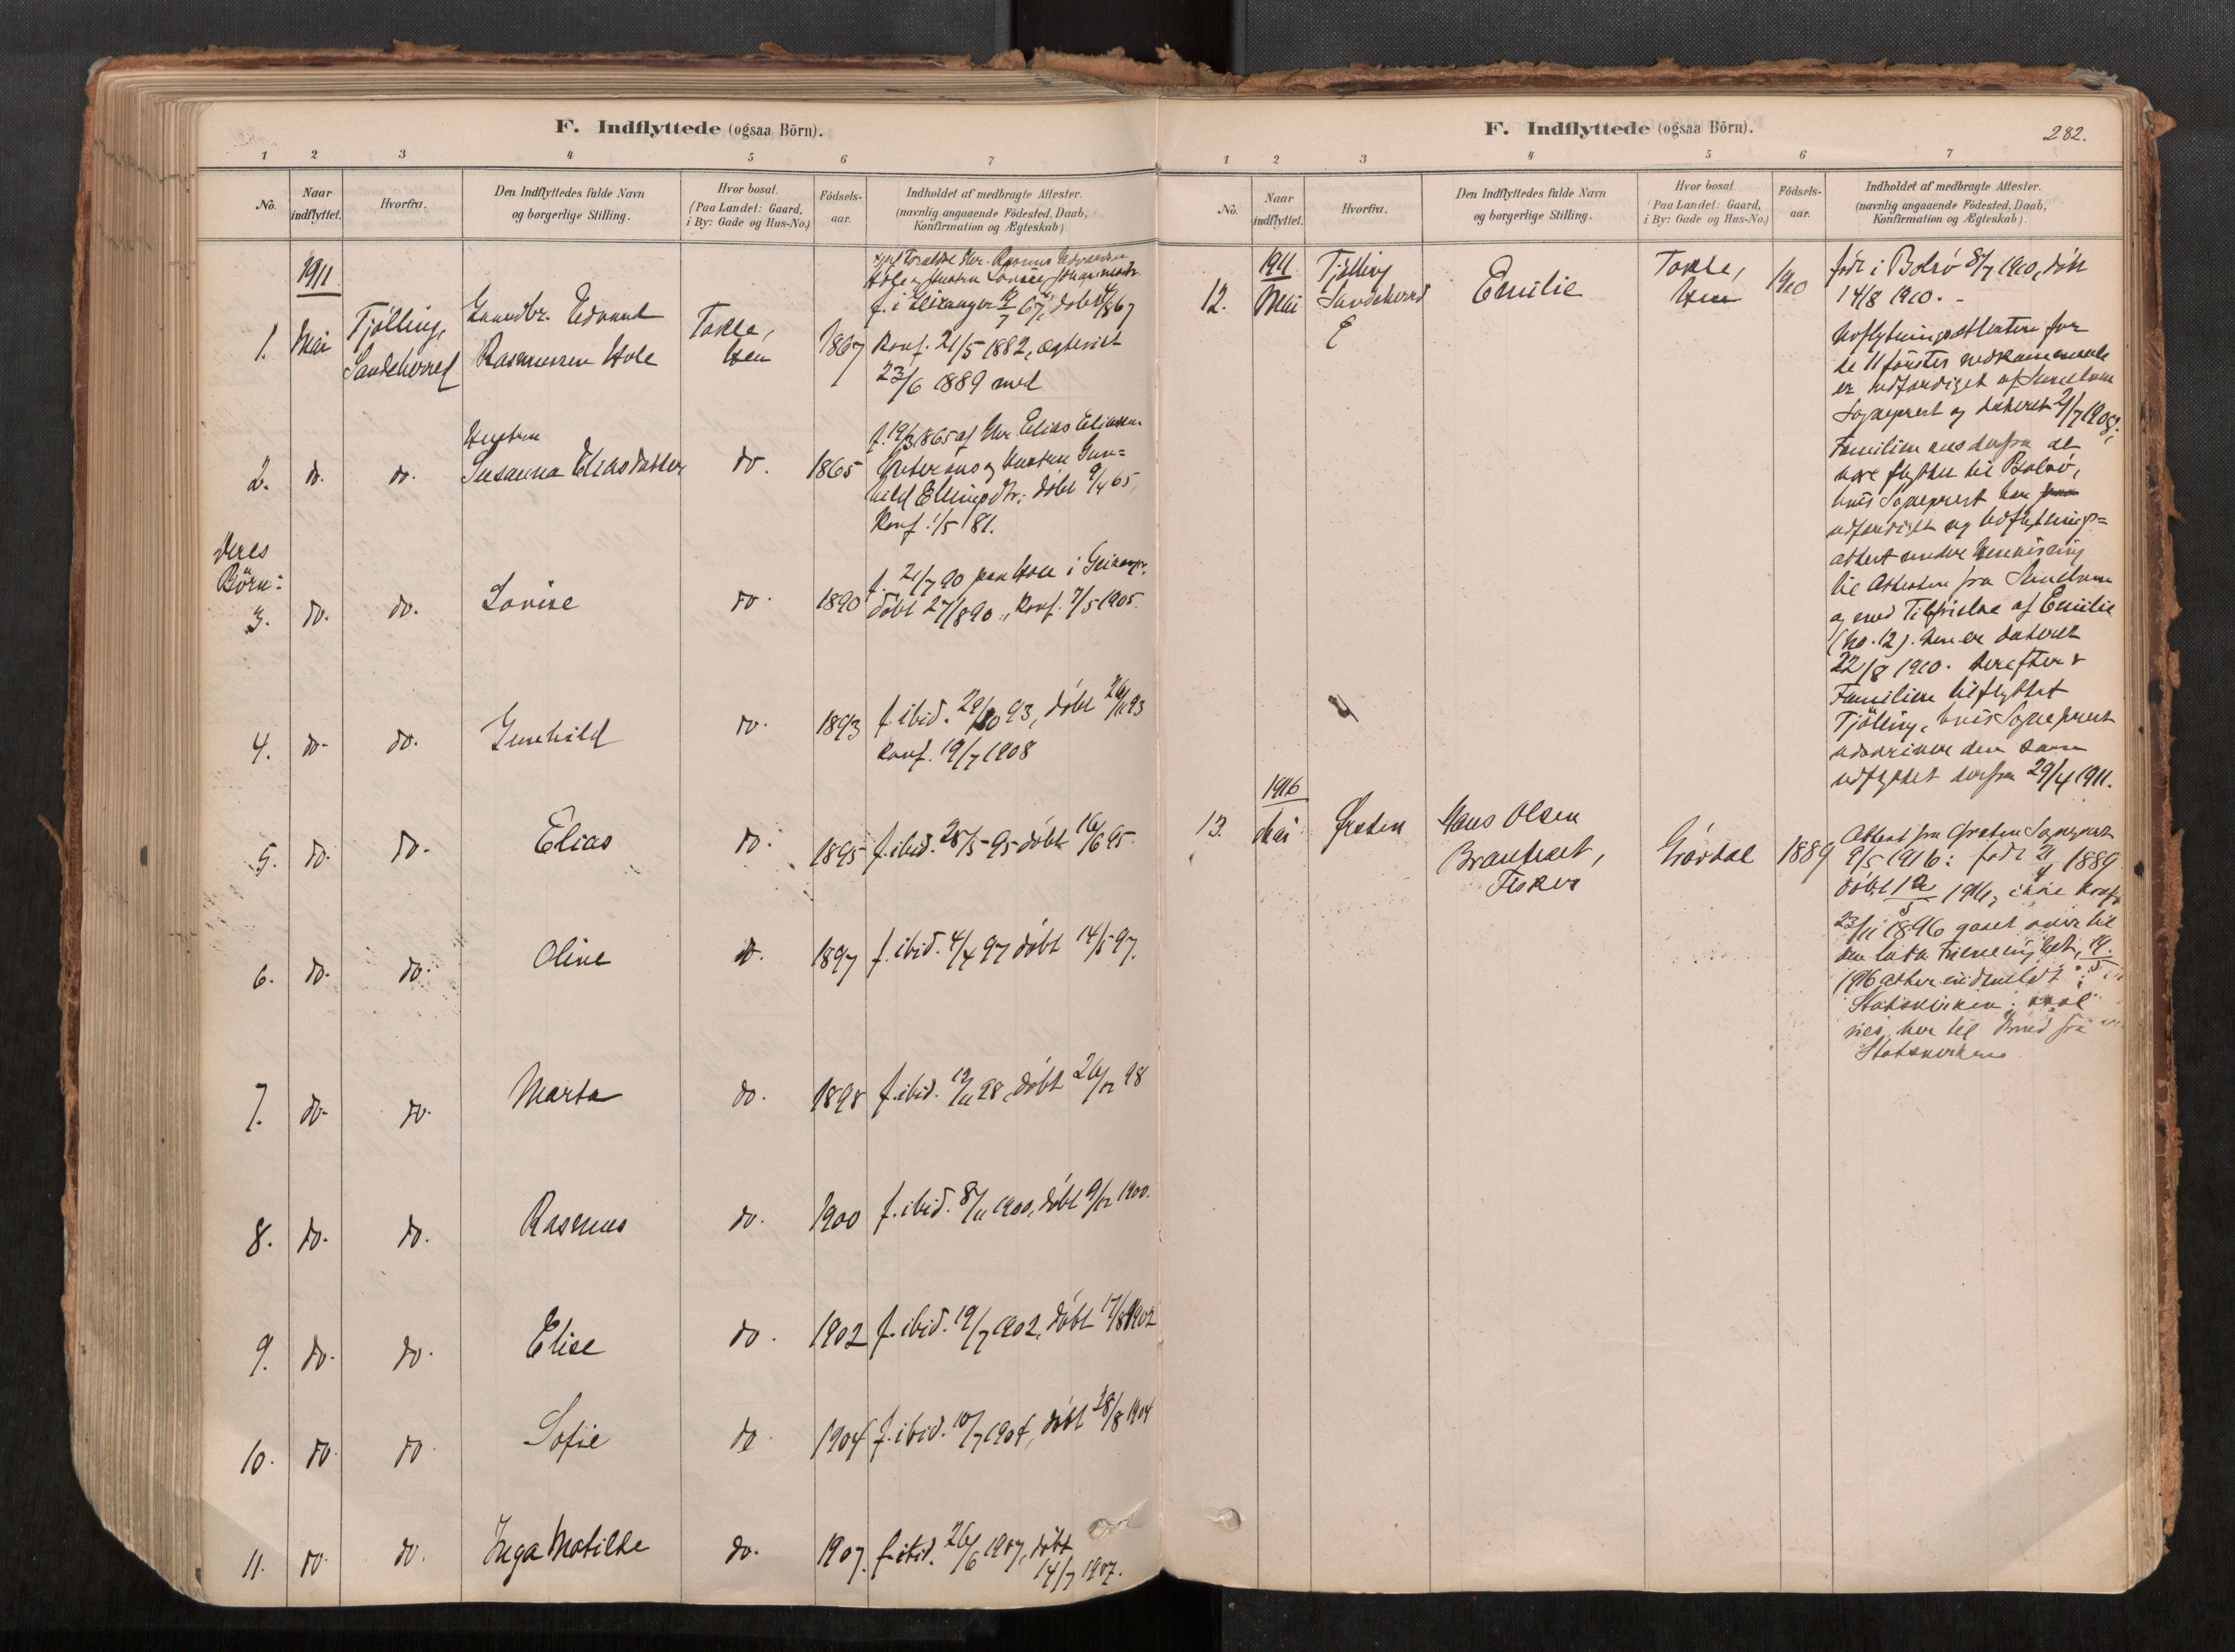 F. Indflyttede (ogsaa Börn).
1 2 3 4 5 6 7
No.
Naar indflyttet.
Hvorfra.
Den Indflyttedes fulde Navn
og borgerlige Stilling.
Hvor bosat.
(Paa Landet: Gaard,
i By: Gade og Hus-No.)
Födsels-
aar.
Indholdet af medbragte Attester.
(navnlig angaaende Födested, Daab,
Konfirmation og Ægteskab)
1911
1. Mai Tjölling, Sandeherred
Gaardbr. Edvard
Rasmussen Hole
Tokle,
Hen
1867
f. i Geiranger 9/7 67, döbt 4/8 67
Konf. 21/5 1882, ægteviet
23/6 1889 med
2. do. do.
Hustru
Susanna Eliasdatter
do. 1865
f. 19/3 1865 af Elias Eliassen
og Hustru Gun=
hild Ellingsdtr. döbt 9/4 65,
Konf. 1/5 81.
Deres
Börn:
3. do. do. Lovise do. 1890
f. 21/7 90 paa Hole i Geiranger.
döbt 27/8 90, Konf. 7/5 1905.
4. do. do. Gunhild do. 1893
f. ibid. 29/10 93, döbt 26/11 93
Konf. 19/7 1908
5. do. do. Elias do. 1895 f. ibid. 28/5 95 döbt 16/6 95.
6. do. do. Oline do. 1897 f. ibid. 4/4 97 döbt 14/5 97.
7. do. do. Marta do. 1898 f. ibid. 12/11 98, döbt 26/12 98
8. do. do. Rasmus do. 1900 f. ibid. 8/11 1900, döbt 9/12 1900.
9. do. do. Elise do. 1902 f. ibid. 19/7 1902, döbt 17/8 1902
10. do. do. Sofie do. 1904 f. ibid. 10/7 1904, döbt 28/8 1904
11. do. do. Inga Matilde do. 1907. f. ibid. 26/6 1907, döbt
14/7 1907.
F. Indflyttede (ogsaa Börn).
282.
1 2 3 4 5 6 7
No.
Naar indflyttet.
Hvorfra.
Den Indflyttedes fulde Navn
og borgerlige Stilling.
Hvor bosat.
(Paa Landet: Gaard,
i By: Gade og Hus-No.)
Födsels-
aar.
Indholdet af medbragte Attester.
(navnlig angaaende Födested, Daab,
Konfirmation og Ægteskab)
1911
12. Mai Tjölling Sandeherred
Emilie
Tokle,
Hen
1910
født i Bolsö 8/7 1910, döbt
14/8 1910. -
Udflytningsattesten for
de 11 første vedkommende
er udfærdiget af
Sogneprest og dateret
Familien derfra at
være flyttet til Bolsö,
hvis Sogneprest har
udfærdiget ny Udflytnings=
attest under Henvisning
til Attesten fra
og med Tilföielse af Emilie
(No. 12). Den er dateret
22/8 1910. Derefter
Familien tilflyttet
Tjölling, hvis Sogneprest
den som
udflyttet derfra 29/4 1911.
1916
13. Mai Ørsten
Hans Olsen
Brauteset,
Fisker
Grövdal 1889
Attest fra Ørsten Sogneprest
9/5 1916: født 21/4 1889
döbt 1916, ikke Konf.
23/11 1896 gaaet over til
den luth. Frimenighet,
1916 atter indmeldt i
Statskirken
Statskirken